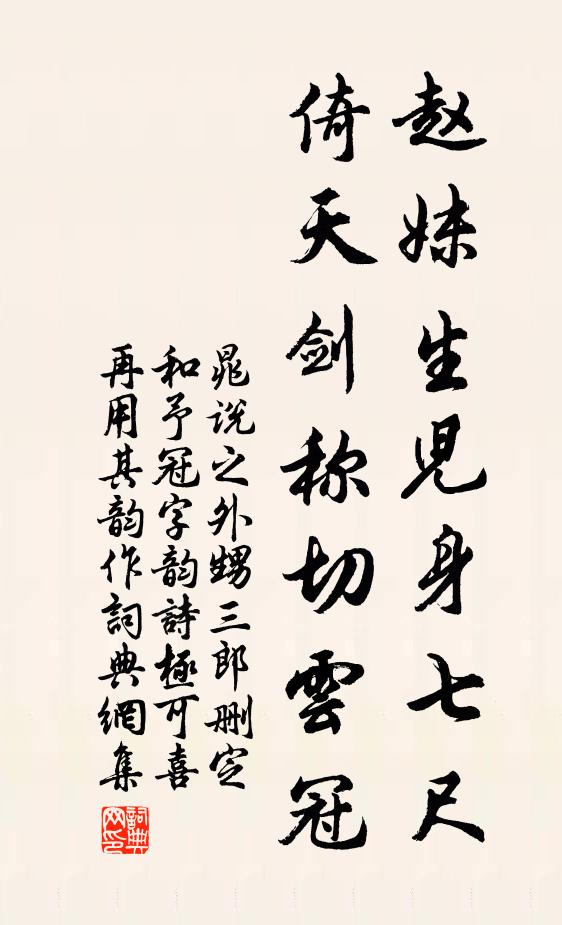 赵妹生児身七尺
倚天剑称切雲冠
晁说之外甥三郎删定
和予冠字韵詩極可喜
再用其韵作詞典網集
詞典網印